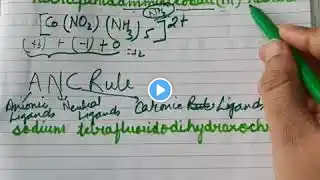 NH₃
[Co(NO₂)(NH₃)₅]²⁺
(+3) + (-1) + 0 = +2
ANC Rule
Anionic Ligands Neutral Ligands Cationic Ligands
sodium tetrafluoridodihydroxoch